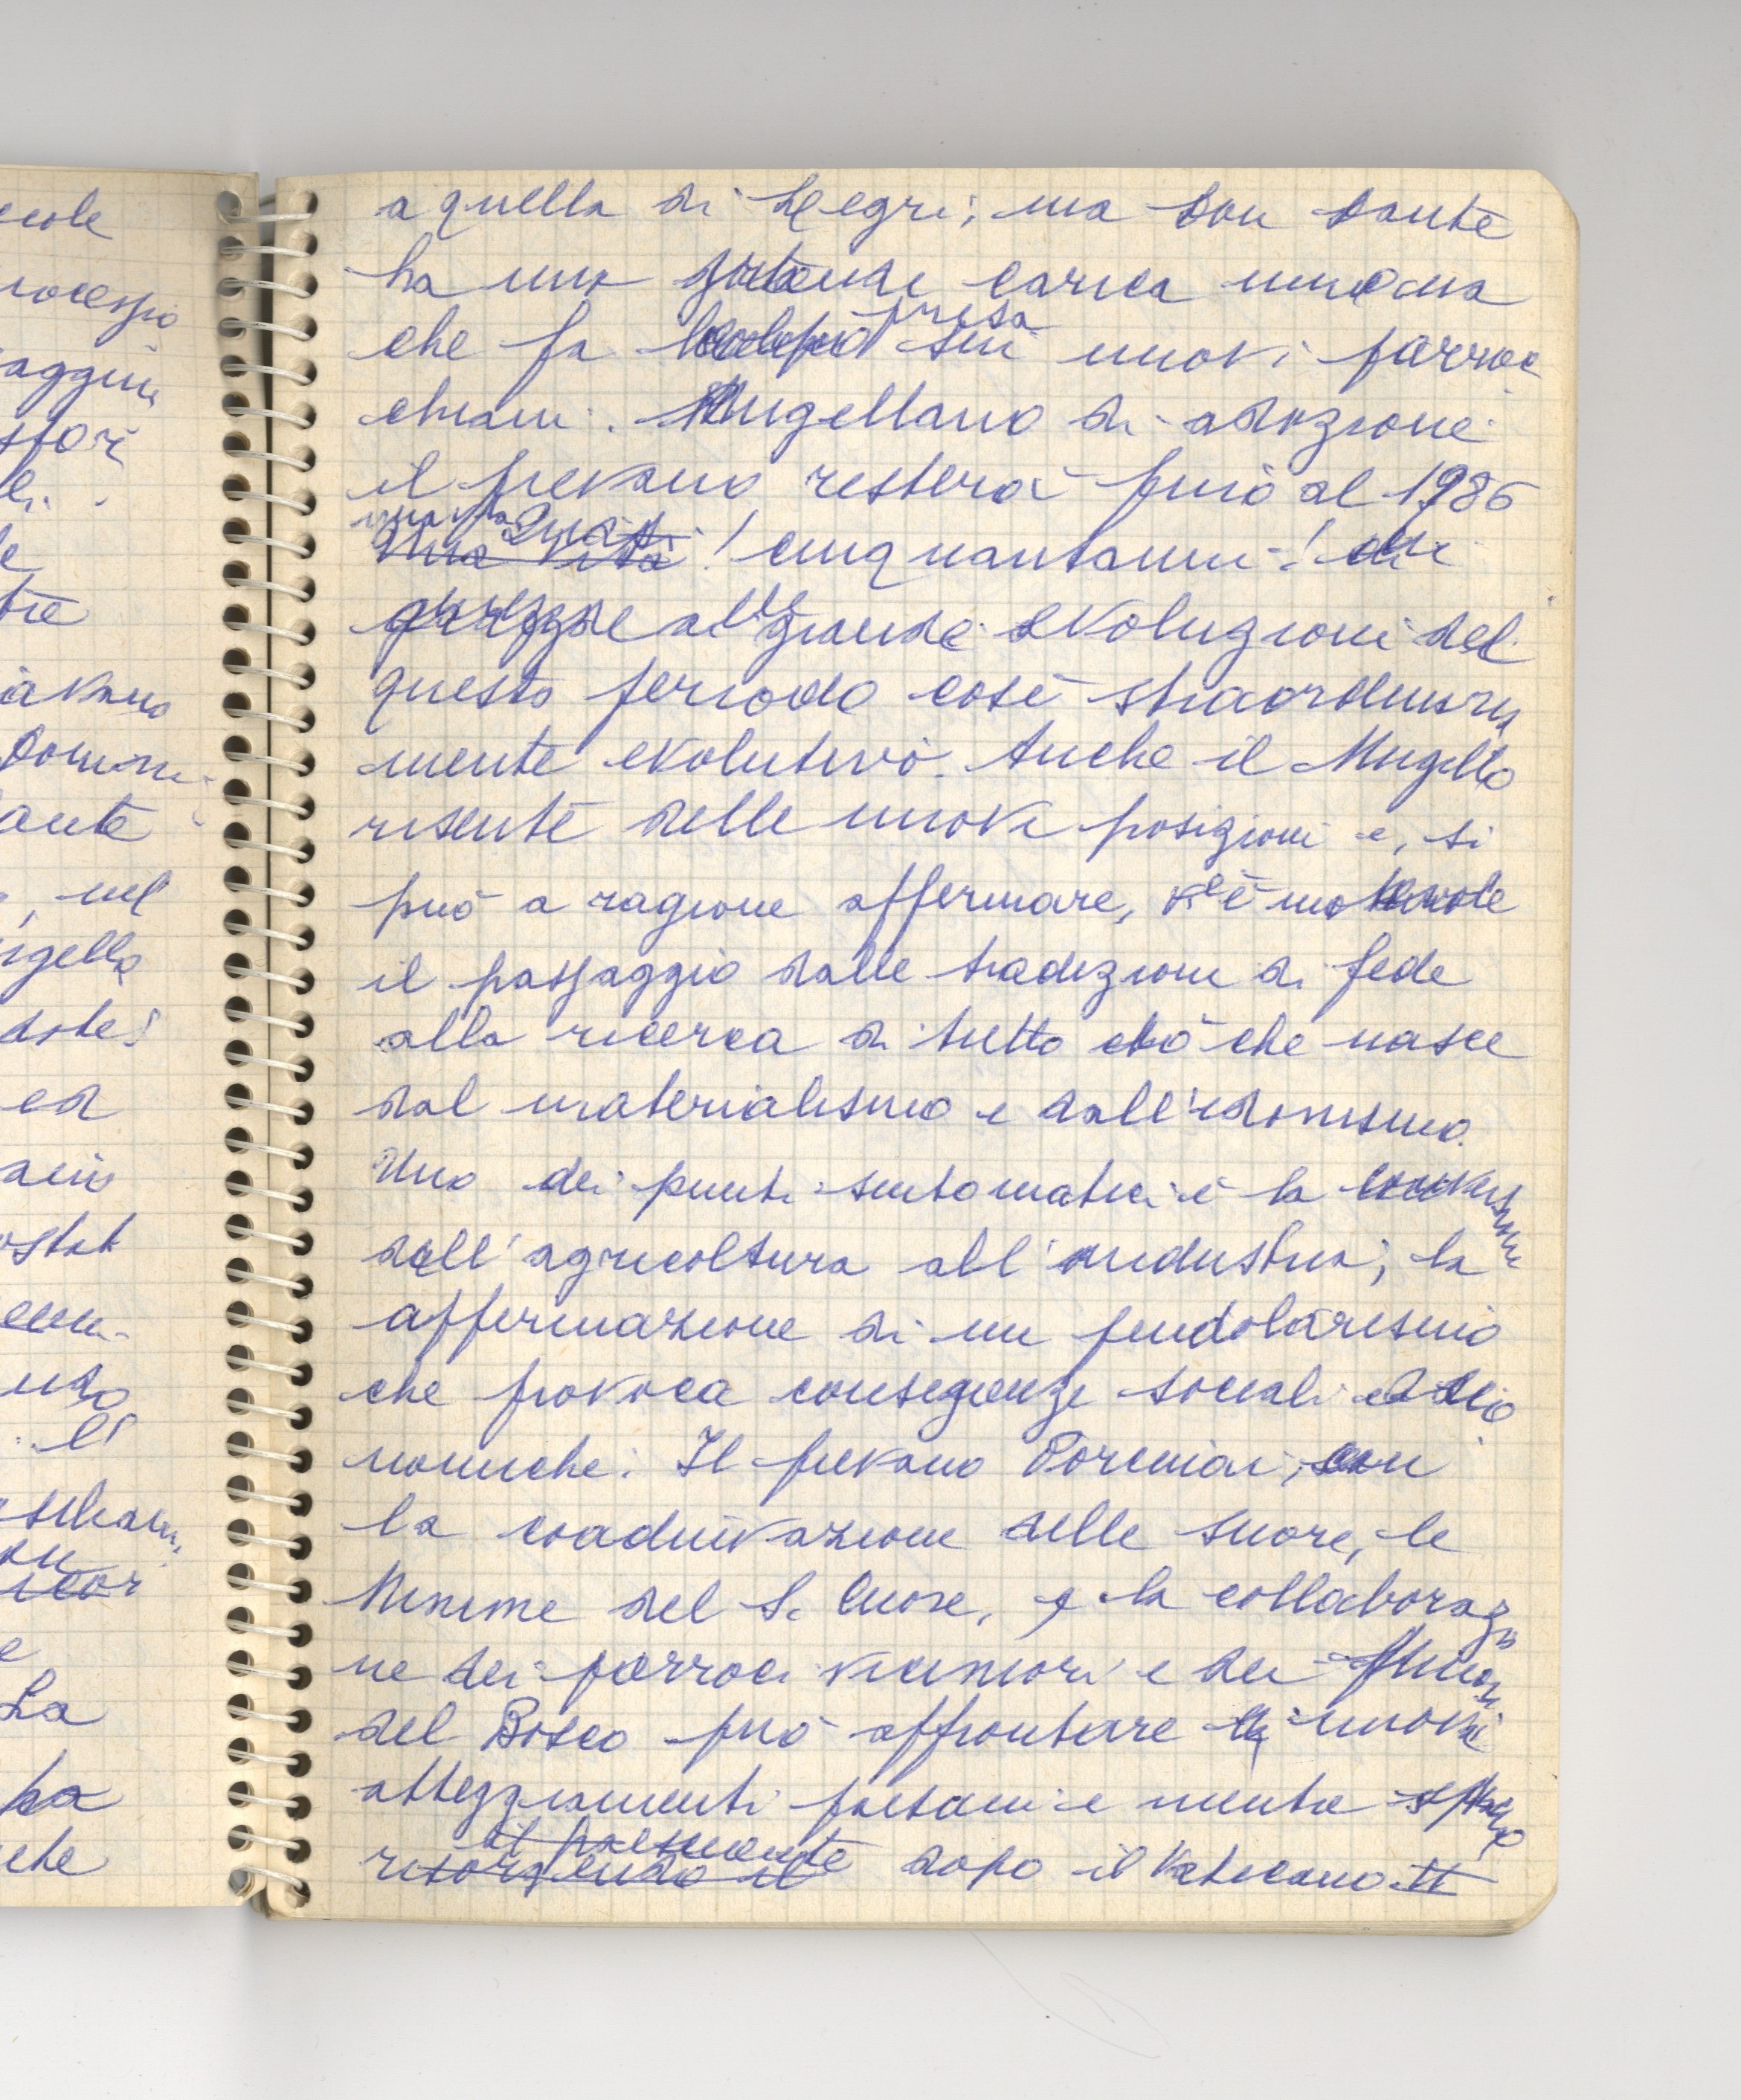 cole
rocessio
aggiu
li.
le
tre
Domini
ante
, nel
igello
ed
La
ha
che
a quella di Negri; ma don Dante
ha una grande carica umana
che fa presa sui nuovi parroc
chiani. Mugellano di adozione
il pievano resterà fino al 1986
una vita quasi! cinquantanni! di
grazie alle grandi evoluzioni del
questo periodo così straordinaria
mente evolutivo. Anche il Mugello
risente delle nuove posizioni e, si
può a ragione affermare, v'è notevole
il passaggio dalle tradizioni di fede
alla ricerca di tutto ciò che nasce
dal materialismo e dall'edonismo.
Uno dei punti sintomatici è la conversione
dall'agricoltura all'industria; la
affermazione di un pendolarismo
che provoca conseguenze sociali ed eco
nomiche. Il pievano Porciniai, con
la coadiuvazione delle suore, le
Minime del S. Cuore, e la collaborazio
ne dei parroci viciniori e dei
del Bosco può affrontare i nuovi
atteggiamenti paesani e mentre
risorgendo il dopo il Vaticano II